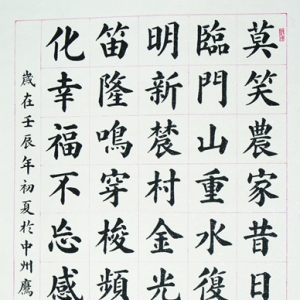 莫笑農家昔日
臨門山重水復
明新農村金光
笛隆鳴穿梭頻
化幸福不忘感
歲在壬辰年初夏於中州鷹